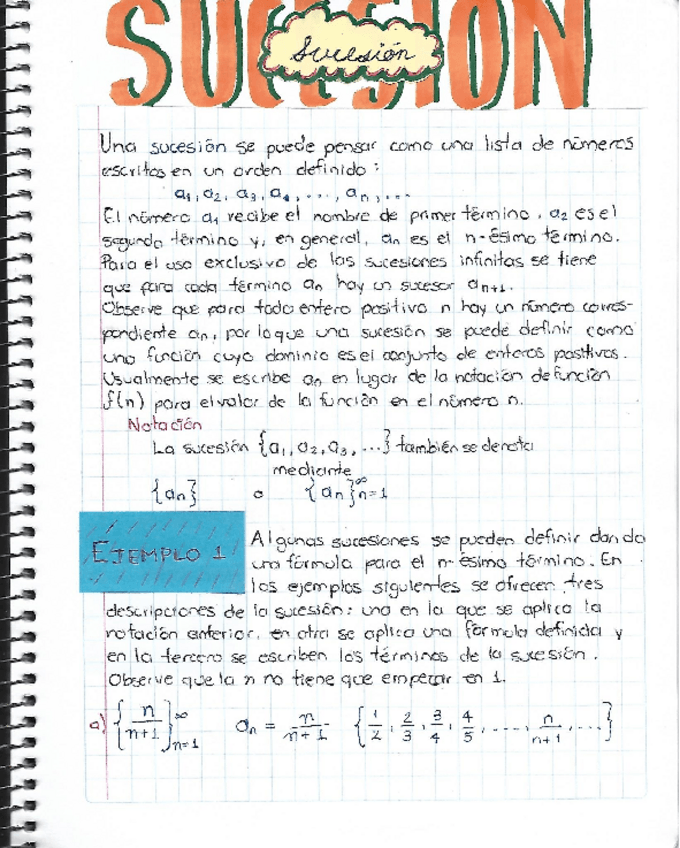 SUCESIÓN
Sucesión
Una sucesión se puede pensar como una lista de números
escritos en un orden definido:
a₁, a₂, a₃, a₄, ..., aₙ, ...
El número a₁ recibe el nombre de primer término, a₂ es el
segundo término y, en general, aₙ es el n-ésimo término.
Para el uso exclusivo de las sucesiones infinitas se tiene
que para cada término aₙ hay un sucesor aₙ₊₁.
Observe que para todo entero positivo n hay un número corres-
pondiente aₙ, por lo que una sucesión se puede definir como
una función cuyo dominio es el conjunto de enteros positivos.
Usualmente se escribe aₙ en lugar de la notación de función
f(n) para el valor de la función en el número n.
Notación
La sucesión {a₁, a₂, a₃, ...} también se denota
mediante
{aₙ} o {aₙ}∞n=1
EJEMPLO 1
Algunas sucesiones se pueden definir dando
una fórmula para el n-ésimo término. En
los ejemplos siguientes se ofrecen tres
descripciones de la sucesión: una en la que se aplica la
notación anterior, en otra se aplica una fórmula definida y
en la tercera se escriben los términos de la sucesión.
Observe que la n no tiene que empezar en 1.
a) {n/n+1}∞n=1 aₙ = n/n+1 {1/2, 2/3, 3/4, 4/5, ..., n/n+1, ...}